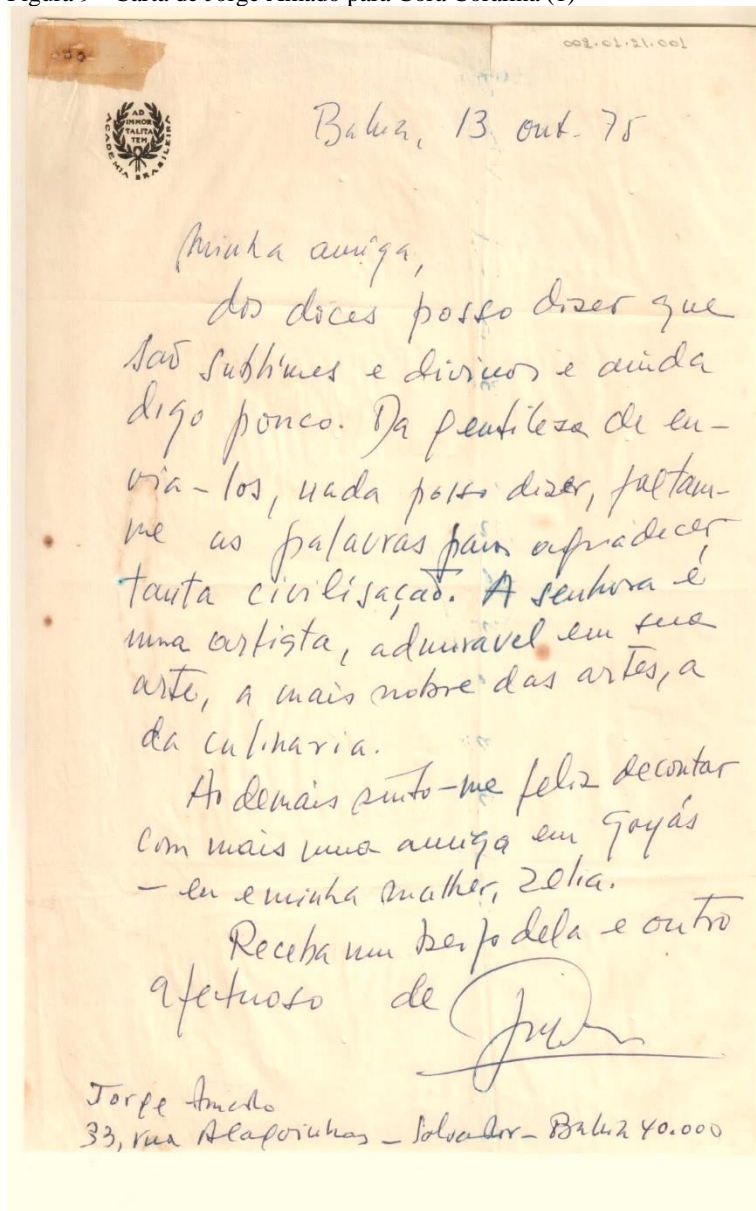 Figura 9 - Carta de Jorge Amado para Cora Coralina (1)
002.01.21.001
AD
IMMOR
TALITA
TEM
ACADEMIA BRASILEIRA
Bahia, 13 out. 75
Minha amiga,
dos doces posso dizer que
são sublimes e divinos e ainda
digo pouco. Da gentilesa de en-
via-los, nada posso dizer, faltam-
me as palavras para agradecer
tanta civilisação. A senhora é
uma artista, admiravel em sua
arte, a mais nobre das artes, a
da culinaria.
Ao demais sinto-me feliz de contar
com mais uma amiga em Goyás
- eu e minha mulher, Zelia.
Receba um beijo dela e outro
afetuoso de
Jorge Amado
33, rua Alagoinhas - Salvador - Bahia 40.000